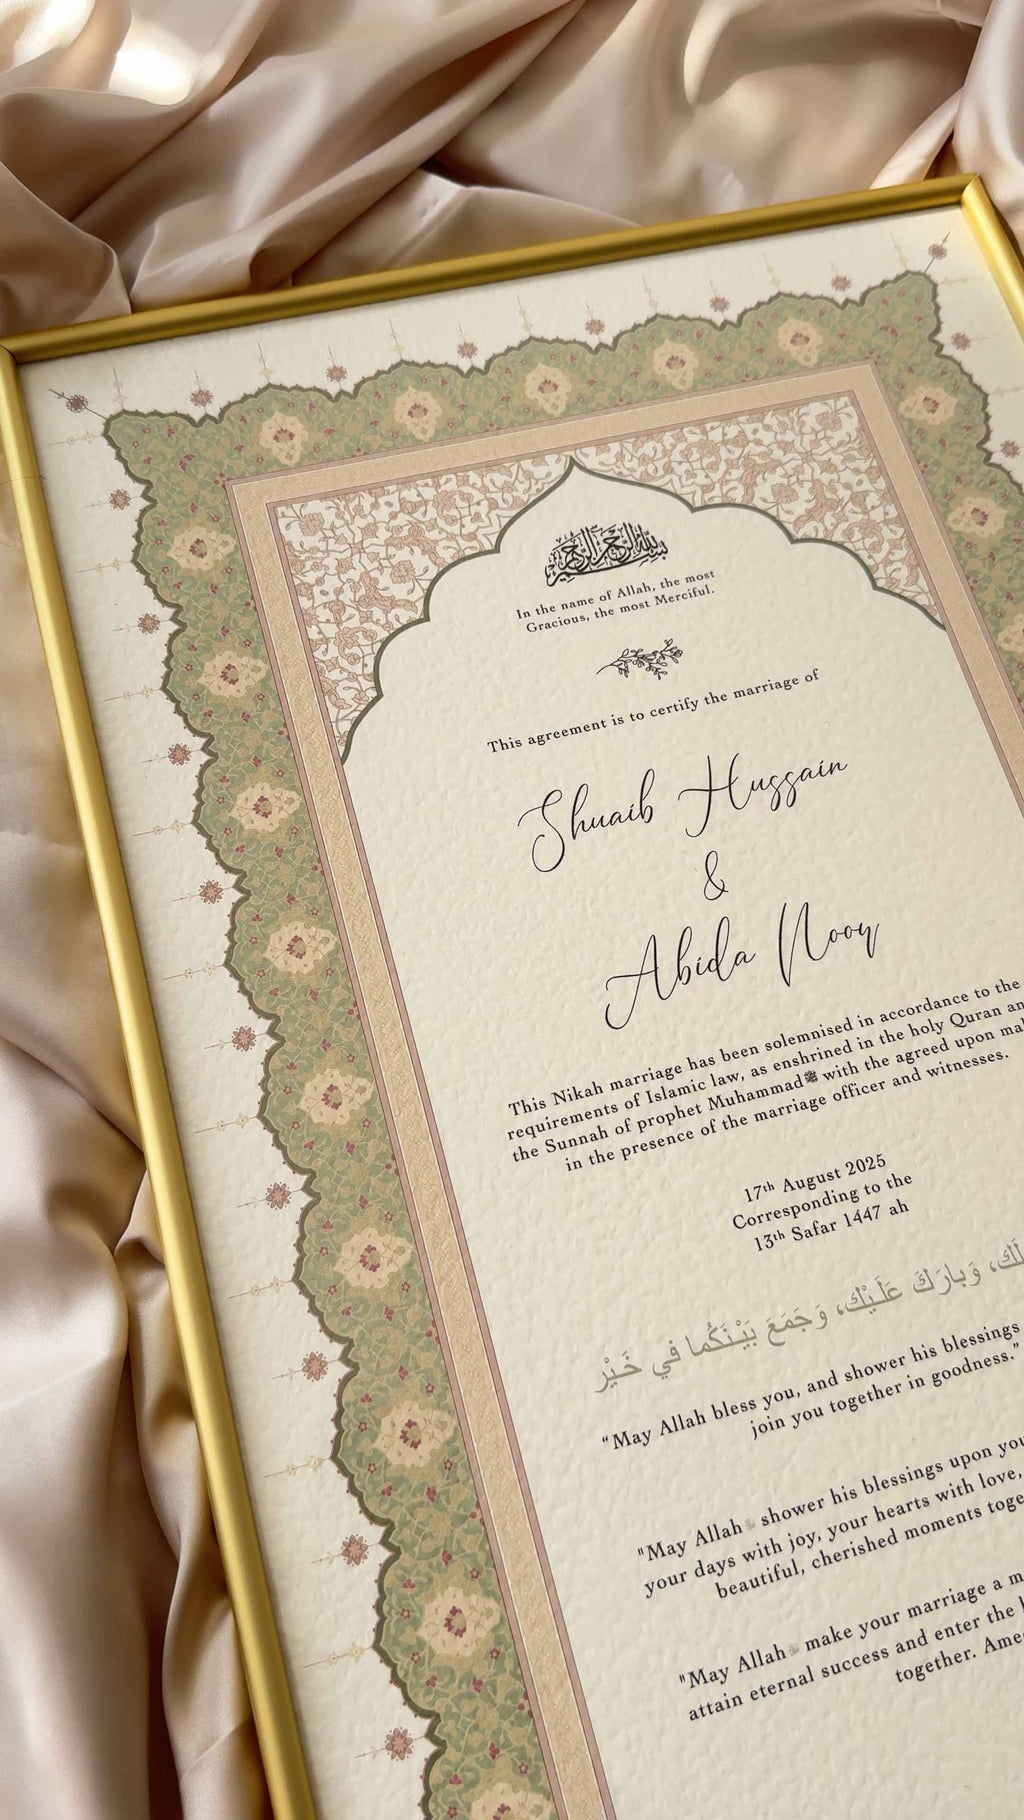 بسم الله الرحمن الرحيم
In the name of Allah, the most
Gracious, the most Merciful.
This agreement is to certify the marriage of
Shuaib Hussain
&
Abida Noor
This Nikah marriage has been solemnised in accordance to the
requirements of Islamic law, as enshrined in the holy Quran
the Sunnah of prophet Muhammadﷺ with the agreed upon
in the presence of the marriage officer and witnesses.
17th August 2025
Corresponding to the
13th Safar 1447 ah
وَبارَكَ عَلَيْك، وَجَمَعَ بَيْنَكُما في خَيْر
“May Allah bless you, and shower his blessings
join you together in goodness.”
"May Allah shower his blessings upon
your days with joy, your hearts with love,
beautiful, cherished moments
"May Allah make your marriage a
attain eternal success and enter the
together.